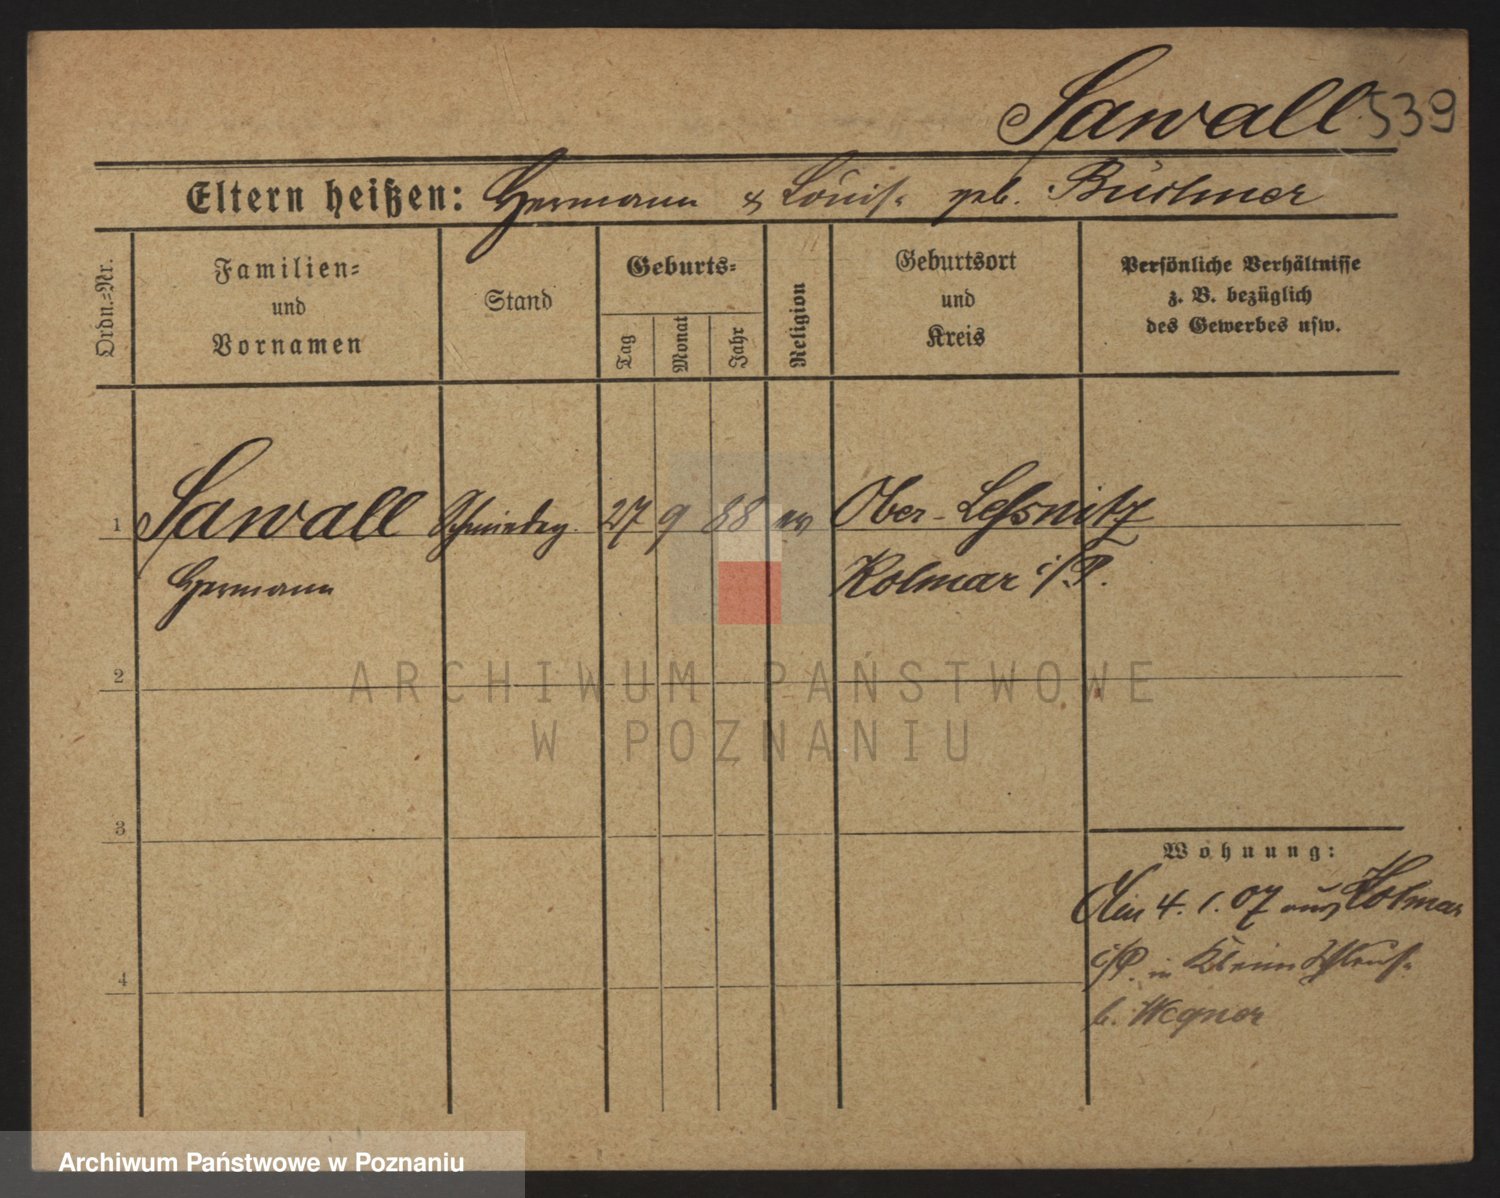 Sawall 539
Eltern heißen: Hermann & Louise geb. Büchner
Ordn.=Nr.
Familien=
und
Vornamen
Stand
Geburts=
Tag
Monat
Jahr
Religion
Geburtsort
und
Kreis
Persönliche Verhältnisse
z. B. bezüglich
des Gewerbes usw.
1 Sawall Schmiedeg. 27 9 88 ev Ober-Leßnitz
Hermann Kolmar i/P.
2
3
4
Wohnung:
Am 4. 1. 07 aus Kolmar
i/P. in Klein
b. Wegner
ARCHIWUM PAŃSTWOWE
W POZNANIU
Archiwum Państwowe w Poznaniu